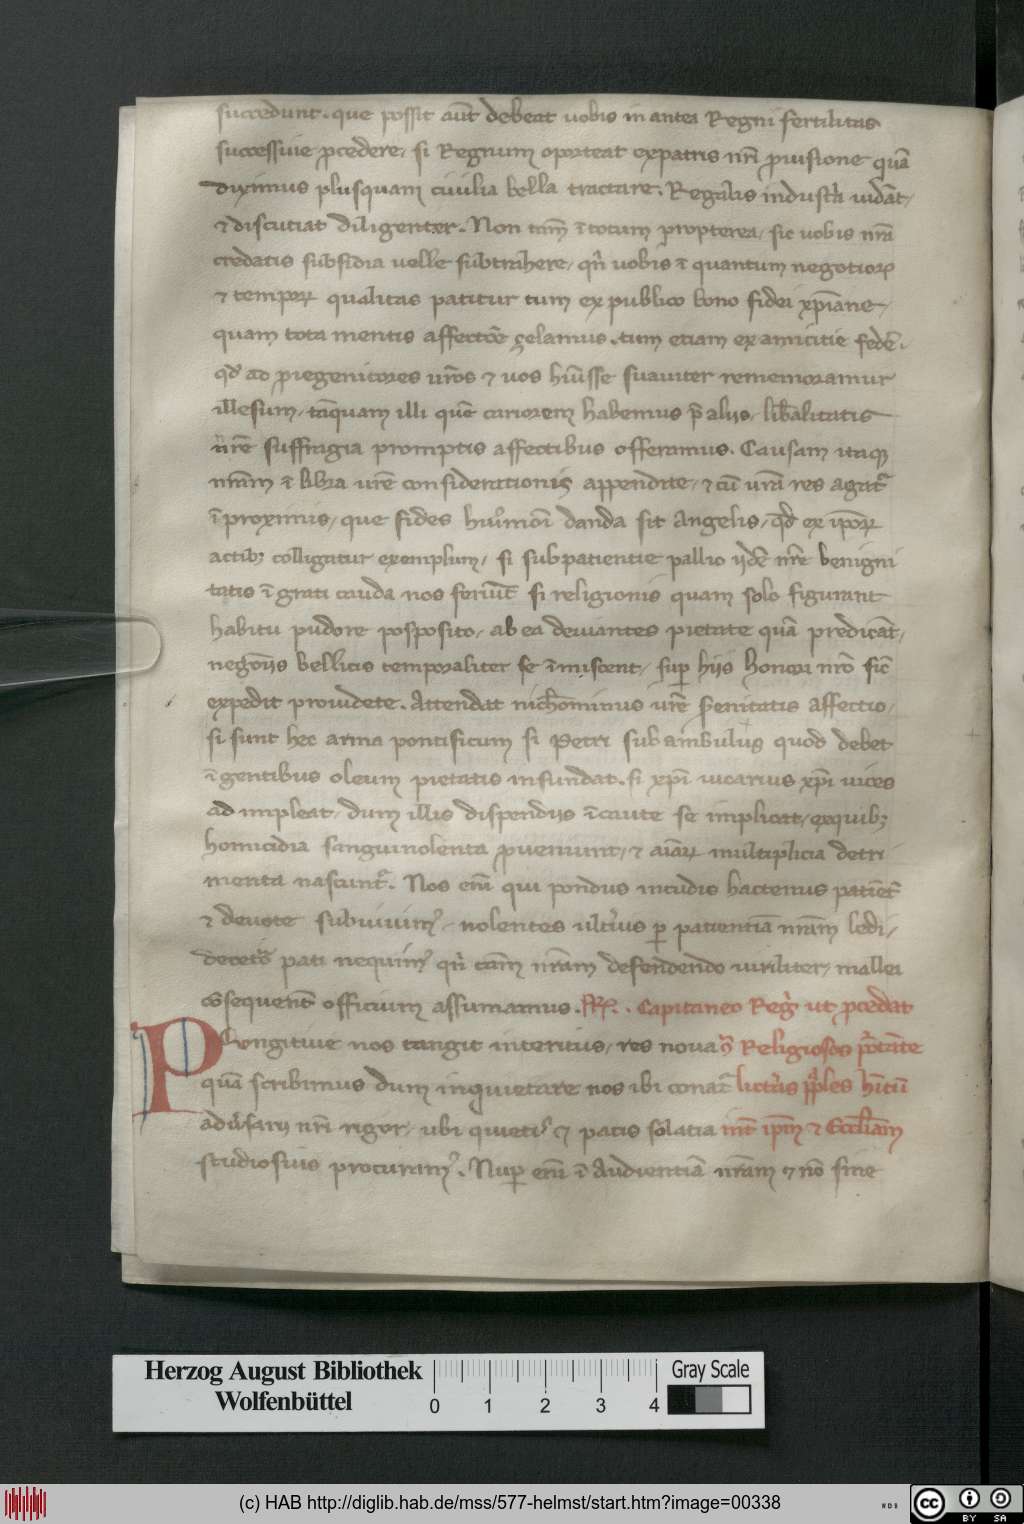 succedunt. que possit aut̄ debeat uobis in antea Regni fertilitas
successiue p̄cedere, si Regnum oporteat expatris nr̄i p̄uisione quā
diximus plusquam ciuilia bella tractare. Regalis industͥa uidāt,
⁊ discutiat diligenter. Non tam̄ ī totum propterea, sic uobis nr̄a
credatis subsidia uelle subtrahere, qn̄ uobis ī quantum negotioꝝ
⁊ tempoꝝ qualitas patitur tum ex publico bono fidei xp̄iane,
quam tota mentis affectōe çelamus. tum etiam ex amicitie fedē.
qd̄ ad p̄iegenitores ur̄os ⁊ uos hūisse suauiter rememoramur
illesum, tāquam illi quē cariorem habemus p̄ alijs, lib̄alitatis
nr̄e suffragia promptis affectibus offeramus. Causam itaqꝫ
nr̄am ī libra ur̄e considerationis appendite, ⁊ cū ur̄a res agatᷣ
ī proximus, que fides hūmōi danda sit Angelis, qd̄ ex ip̄oꝝ
actibꝫ colligatur exemplum, si subpatientie pallio ijdē nr̄e benigni
tatis īgrati cauda nos feriūt si religionis quam solo figurant
habitu pudore posposito, ab ea deuiantes pietate quā predicāt,
negōijs bellicis temporaliter se īmiscent, suꝑ hijs honori nr̄o sic̄
expedit prouidete. Attendat nich̄ominus ur̄e s̄enitatis affectio,
si sunt hec arma pontificum si Petri sub ambulus quod debet
ī gentibus oleum pietatis infundat. si xp̄i uicarius xp̄i uices
ad impleat, dum illis dispendijs īcaute se implicat, exquibꝫ
homicidia sanguinolenta p̄ueniunt, ⁊ aīaꝝ multiplicia detri
menta nascuntᷣ. Nos em̄ qui pondus incudis hactenus patiēt̄
⁊ deuote subiuimꝰ, nolentes ult̄ius ꝑ patientiā nr̄am ledi,
deceto᷑ pati nequimꝰ qn̄ cām nr̄am defendendo uiriliter, mallei
ꝯsequent̄ officium assumamus. RR. . Capitaneo Reḡ ut p̄cedat
Pungitiue nos tangit interitus, res noua ꝯ̄ Religiosos p̄tāte
quā scribimus dum inquietare nos ibi conatᷣ luctūs pp̄les hn̄tū
adūsarij nr̄i rigor, ubi quietis ⁊ pacis solatia int̄ ip̄m ⁊ Eccl̄iam
studiosius procuramꝰ. Nuꝑ em̄ ī Audientiā nr̄am ⁊ nō sine
Herzog August Bibliothek
Wolfenbüttel
0 1 2 3 4
Gray Scale
(c) HAB http://diglib.hab.de/mss/577-helmst/start.htm?image=00338
WDB
cc BY SA